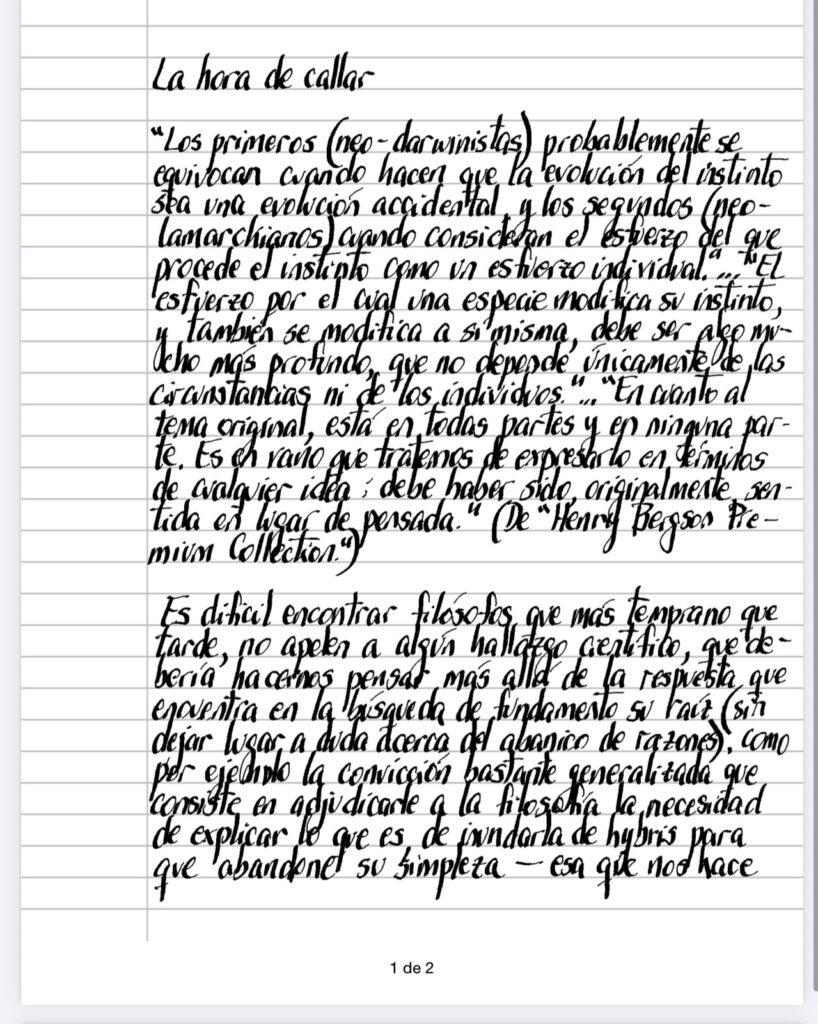 La hora de callar
"Los primeros (neo-darwinistas) probablemente se
equivocan cuando hacen que la evolución del instinto
sea una evolución accidental, y los segundos (neo-
lamarckianos) cuando consideran el esfuerzo del que
procede el instinto como un esfuerzo individual."... "El
esfuerzo por el cual una especie modifica su instinto,
y también se modifica a sí misma, debe ser algo mu-
cho más profundo, que no depende únicamente de las
circunstancias ni de los individuos."... "En cuanto al
tema original, está en todas partes y en ninguna par-
te. Es en vano que tratemos de expresarlo en términos
de cualquier idea; debe haber sido, originalmente, sen-
tida en lugar de pensada." (De "Henry Bergson Pre-
mium Collection.")
Es difícil encontrar filósofos que más temprano que
tarde, no apelen a algún hallazgo científico, que de-
bería hacernos pensar más allá de la respuesta que
encuentra en la búsqueda de fundamento su raíz (sin
dejar lugar a duda acerca del abanico de razones), como
por ejemplo la convicción bastante generalizada que
consiste en adjudicarle a la filosofía la necesidad
de explicar lo que es, de inundarla de hybris para
que abandone su simpleza — esa que nos hace
1 de 2